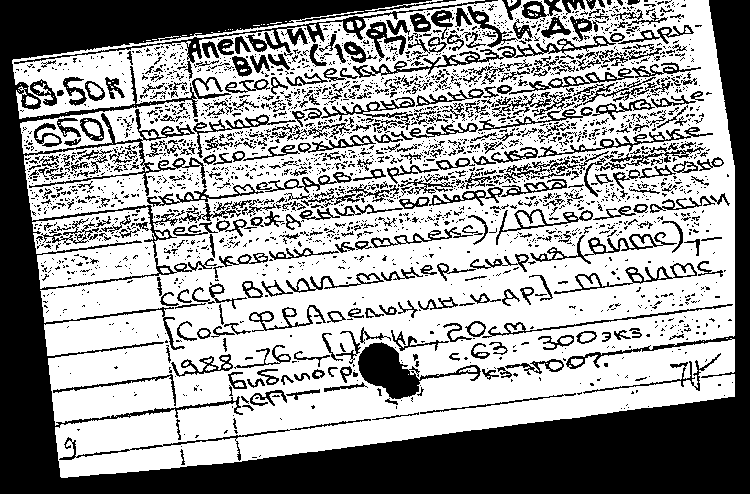 Апельцин, Файвель Рахмиле-
вич (1917-1992) и др.
89-50К
Методические указания по при-
6501
менению рационального комплекса
геолого-геохимических и геофизиче-
ских методов при поисках и оценке
месторождений вольфрама (прогнозно
поисковый комплекс) / М-во геологии
СССР, ВНИИ минер. сырья (ВИМС);
[Сост. Ф.Р. Апельцин и др.] - М.: ВИМС,
1988. - 76 с., [1] л. ил.; 20 см.
Библиогр.: с. 63. - 300 экз.
ДСП. Экз. N 007.
9